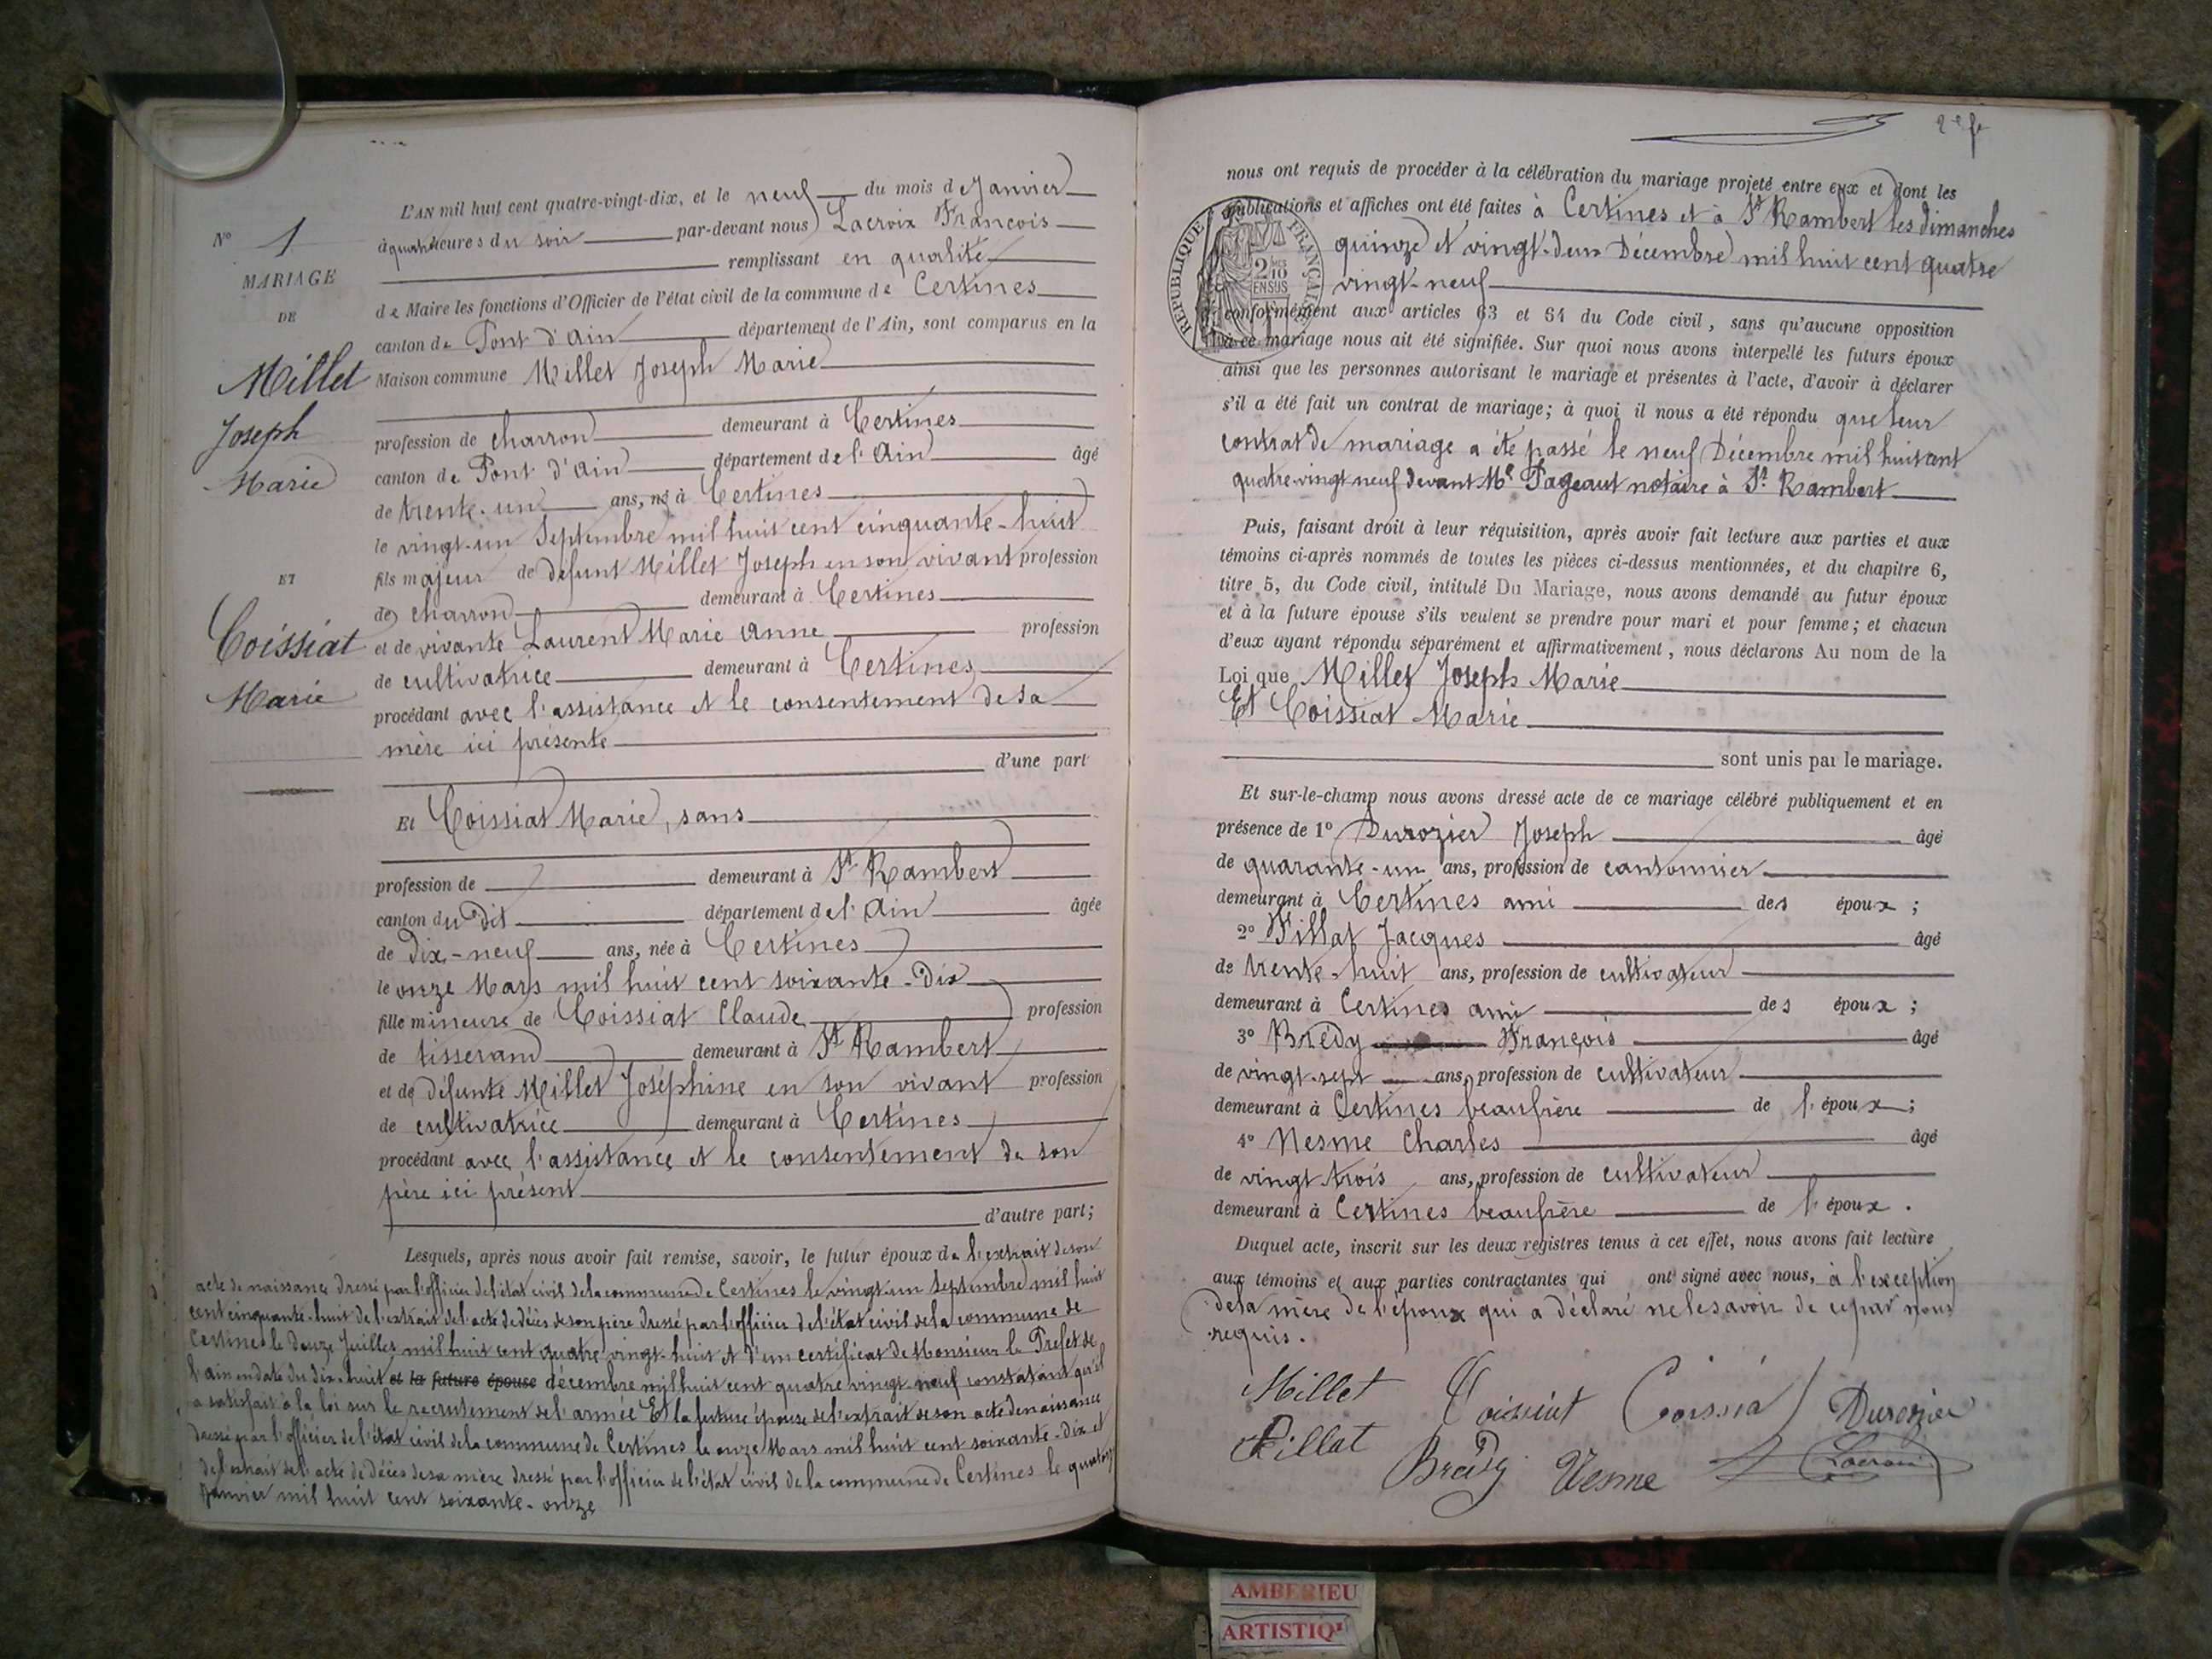 N° 1
MARIAGE
DE
Millet
Joseph
Marie
ET
Coissiat
Marie
L'AN mil huit cent quatre-vingt-dix, et le neuf du mois de Janvier
à quatre heures du soir par-devant nous Lacroix François
remplissant en qualité
de Maire les fonctions d'Officier de l'état civil de la commune de Certines
canton de Pont d'Ain département de l'Ain, sont comparus en la
Maison commune Millet Joseph Marie
profession de charron demeurant à Certines
canton de Pont d'Ain département de l'Ain âgé
de trente-un ans, né à Certines
le vingt-un Septembre mil huit cent cinquante-huit
fils majeur de défunt Millet Joseph en son vivant profession
de charron demeurant à Certines
et de vivante Laurent Marie Anne profession
de cultivatrice demeurant à Certines
procédant avec l'assistance et le consentement de sa
mère ici présente
d'une part
Et Coissiat Marie, sans
profession de demeurant à St Rambert
canton du dit département de l'Ain âgée
de dix-neuf ans, née à Certines
le onze Mars mil huit cent soixante-dix
fille mineure de Coissiat Claude profession
de tisserand demeurant à St Rambert
et de défunte Millet Joséphine en son vivant profession
de cultivatrice demeurant à Certines
procédant avec l'assistance et le consentement de son
père ici présent
d'autre part;
Lesquels, après nous avoir fait remise, savoir, le futur époux de l'extrait de son
acte de naissance dressé par l'officier de l'état civil de la commune de Certines le vingt-un Septembre mil huit
cent cinquante-huit de l'extrait de l'acte de décès de son père dressé par l'officier de l'état civil de la commune de
Certines le douze Juillet mil huit cent quatre vingt-huit et d'un certificat de Monsieur le Préfet de
l'ain en date du dix-huit et la future épouse décembre mil huit cent quatre vingt-neuf constatant qu'il
a satisfait à la loi sur le recrutement de l'armée Et la future épouse de l'extrait de son acte de naissance
dressé par l'officier de l'état civil de la commune de Certines le onze Mars mil huit cent soixante-dix et
de l'extrait de l'acte de décès de sa mère dressé par l'officier de l'état civil de la commune de Certines le quatorze
Janvier mil huit cent soixante-onze
2e f
nous ont requis de procéder à la célébration du mariage projeté entre eux et dont les
publications et affiches ont été faites à Certines et à St Rambert les dimanches
quinze et vingt-deux Décembre mil huit cent quatre
vingt-neuf
RÉPUBLIQUE FRANÇAISE
2 10
EN SUS
conformément aux articles 63 et 64 du Code civil, sans qu'aucune opposition
à ce mariage nous ait été signifiée. Sur quoi nous avons interpellé les futurs époux
ainsi que les personnes autorisant le mariage et présentes à l'acte, d'avoir à déclarer
s'il a été fait un contrat de mariage; à quoi il nous a été répondu que leur
contrat de mariage a été passé le neuf Décembre mil huit cent
quatre vingt neuf devant Me Pageaut notaire à St Rambert
Puis, faisant droit à leur réquisition, après avoir fait lecture aux parties et aux
témoins ci-après nommés de toutes les pièces ci-dessus mentionnées, et du chapitre 6,
titre 5, du Code civil, intitulé Du Mariage, nous avons demandé au futur époux
et à la future épouse s'ils veulent se prendre pour mari et pour femme; et chacun
d'eux ayant répondu séparément et affirmativement, nous déclarons Au nom de la
Loi que Millet Joseph Marie
Et Coissiat Marie
sont unis par le mariage.
Et sur-le-champ nous avons dressé acte de ce mariage célébré publiquement et en
présence de 1° Durozier Joseph âgé
de quarante-un ans, profession de cantonnier
demeurant à Certines ami des époux;
2° Pillat Jacques âgé
de trente-huit ans, profession de cultivateur
demeurant à Certines ami des époux;
3° Brédy François âgé
de vingt-sept ans, profession de cultivateur
demeurant à Certines beaufrère de l'époux;
4° Nesme Charles âgé
de vingt trois ans, profession de cultivateur
demeurant à Certines beaufrère de l'époux.
Duquel acte, inscrit sur les deux registres tenus à cet effet, nous avons fait lecture
aux témoins et aux parties contractantes qui ont signé avec nous, à l'exception
de la mère de l'époux qui a déclaré ne le savoir de ce par nous
requis.
Millet Coissiat Coissia Durozier
Pillat Brédy Nesme Lacroix
AMBERIEU
ARTISTIQ